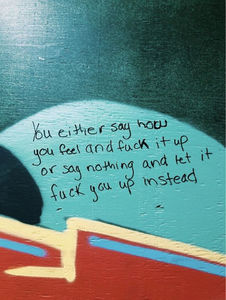 You either say how
you feel and fuck it up
or say nothing and let it
fuck you up instead